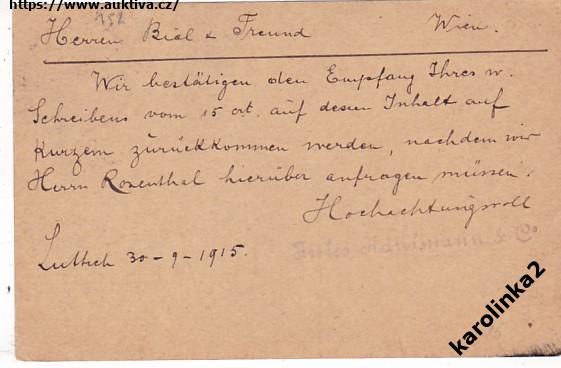 https://www.auktiva.cz/
152
Herren Biel & Freund Wien.
Wir bestätigen den Empfang Ihres w.
Schreibens vom 15 ct. auf dessen Inhalt auf
Kurzem zurückkommen werden, nachdem wir
Herrn Rosenthal hierüber anfragen müssen.
Hochachtungsvoll
Luttich 30-9-1915.
& Co
karolinka2